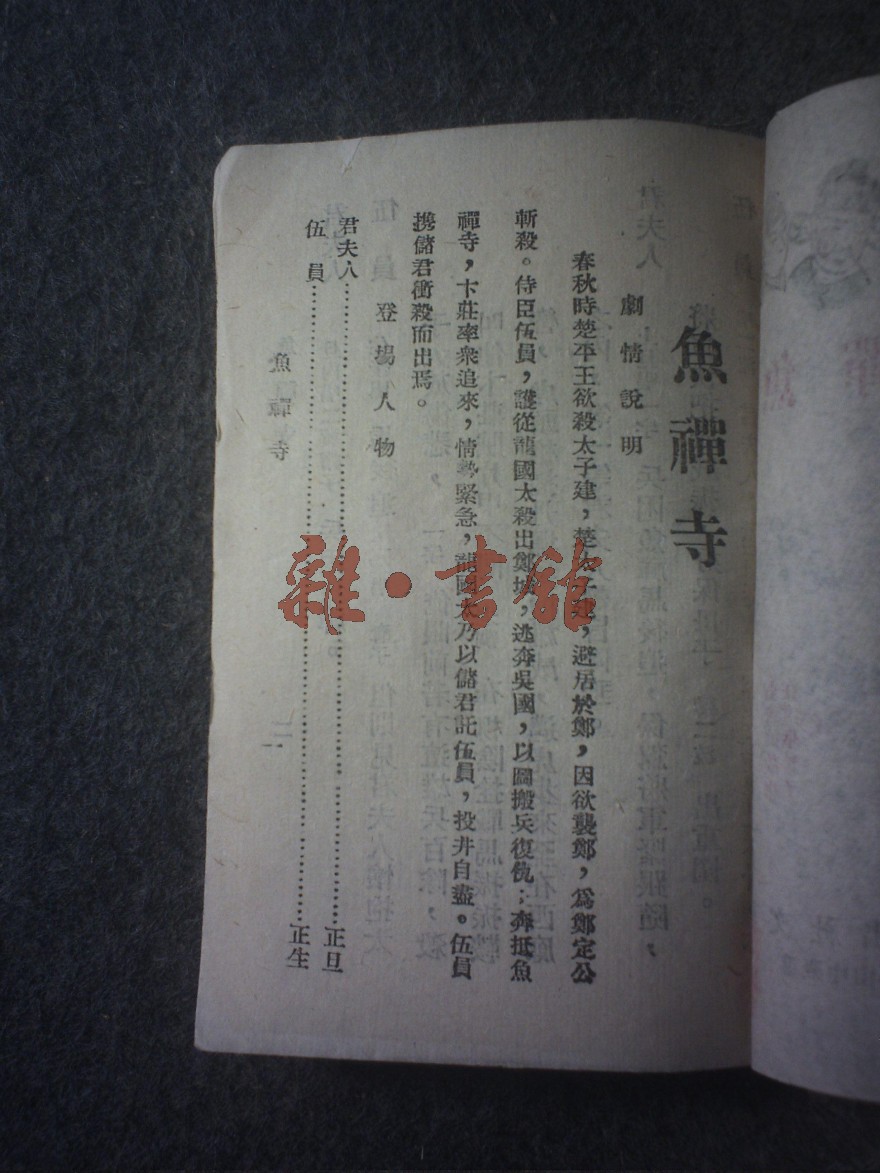 魚禪寺
劇情說明
春秋時楚平王欲殺太子建，楚太子建，避居於鄭，因欲襲鄭，爲鄭定公
斬殺。侍臣伍員，護從龍國太殺出鄭城，逃奔吳國，以圖搬兵復仇；奔抵魚
禪寺，卞莊率衆追來，情勢緊急，龍國太乃以儲君託伍員，投井自盡。伍員
携儲君衝殺而出焉。
登場人物
君夫人……正旦
伍員……正生
魚禪寺
雜·書館